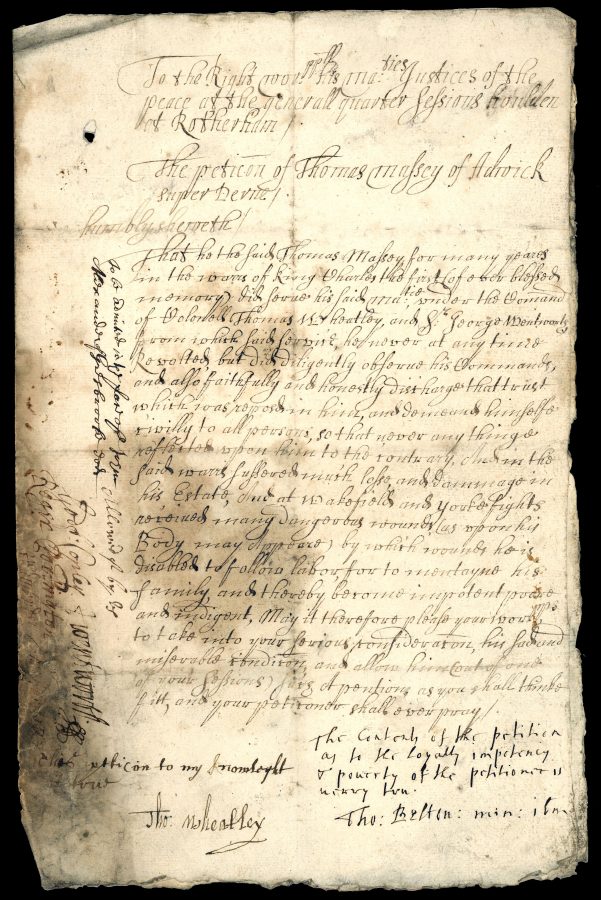 To the Right wor:ppll his ma:ties Justices of the
peace at the generall quarter Sessions houlden
at Rotherham/
The peticon of Thomas Massey of Adwick
super Derne/
humbly sheweth/
That he the said Thomas Massey for many yeares
in the warrs of King Charles the first (of ever blessed
memory) did serve his said ma:tie under the Comand
of Colonell Thomas Wheatley, and Sr. George Wentworth
from which said service he never at any time
Revolted but did diligently observe his Commands,
and also faithfully and honestly discharge that trust
which was reposed in him, and demeand himselfe
civilly to all persons, so that never any thinge
reflected upon him to the contrary, And in the
said warrs suffered much losse and dammage in
his Estate, And at Wakefield and Yorke fights
received many dangerous wounds (as upon his
Body may appeare) by which wounds he is
disabled to follow labor, for to mentayne his
family and thereby become impotent poore
and indigent, May it therefore please your worpps
to take into your serious consideracon, his sad and
miserable condicon, and allow him (out of one
of your Sessions) such pention as you shall thinke
fitt, and your peticoner shall ever pray/
The Contents of the petition
as to the loyalty impotency
& poverty of the petitioner is
verry true.
Tho: Belton: min: ibm
peticon to my knowleght
true
Tho: Wheatley
to be admitted in the place of
Alexander
Allowed of by us
Copley